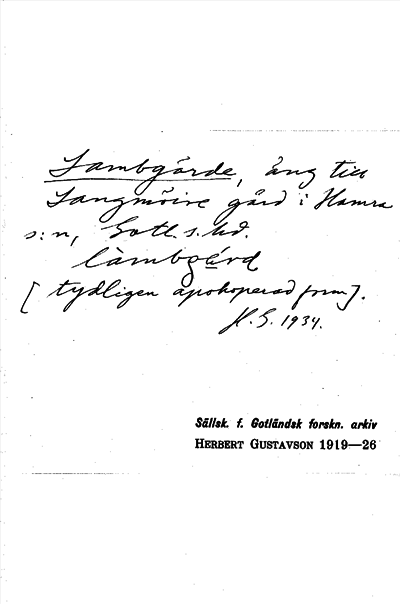 Lambgärde, äng till
Langmöire gård i Hamra
s:n, Gotl. s. hd.
làmbgẹrd
[tydligen apokoperad form].
H. G. 1934.
Sällsk. f. Gotländsk forskn. arkiv
HERBERT GUSTAVSON 1919—26